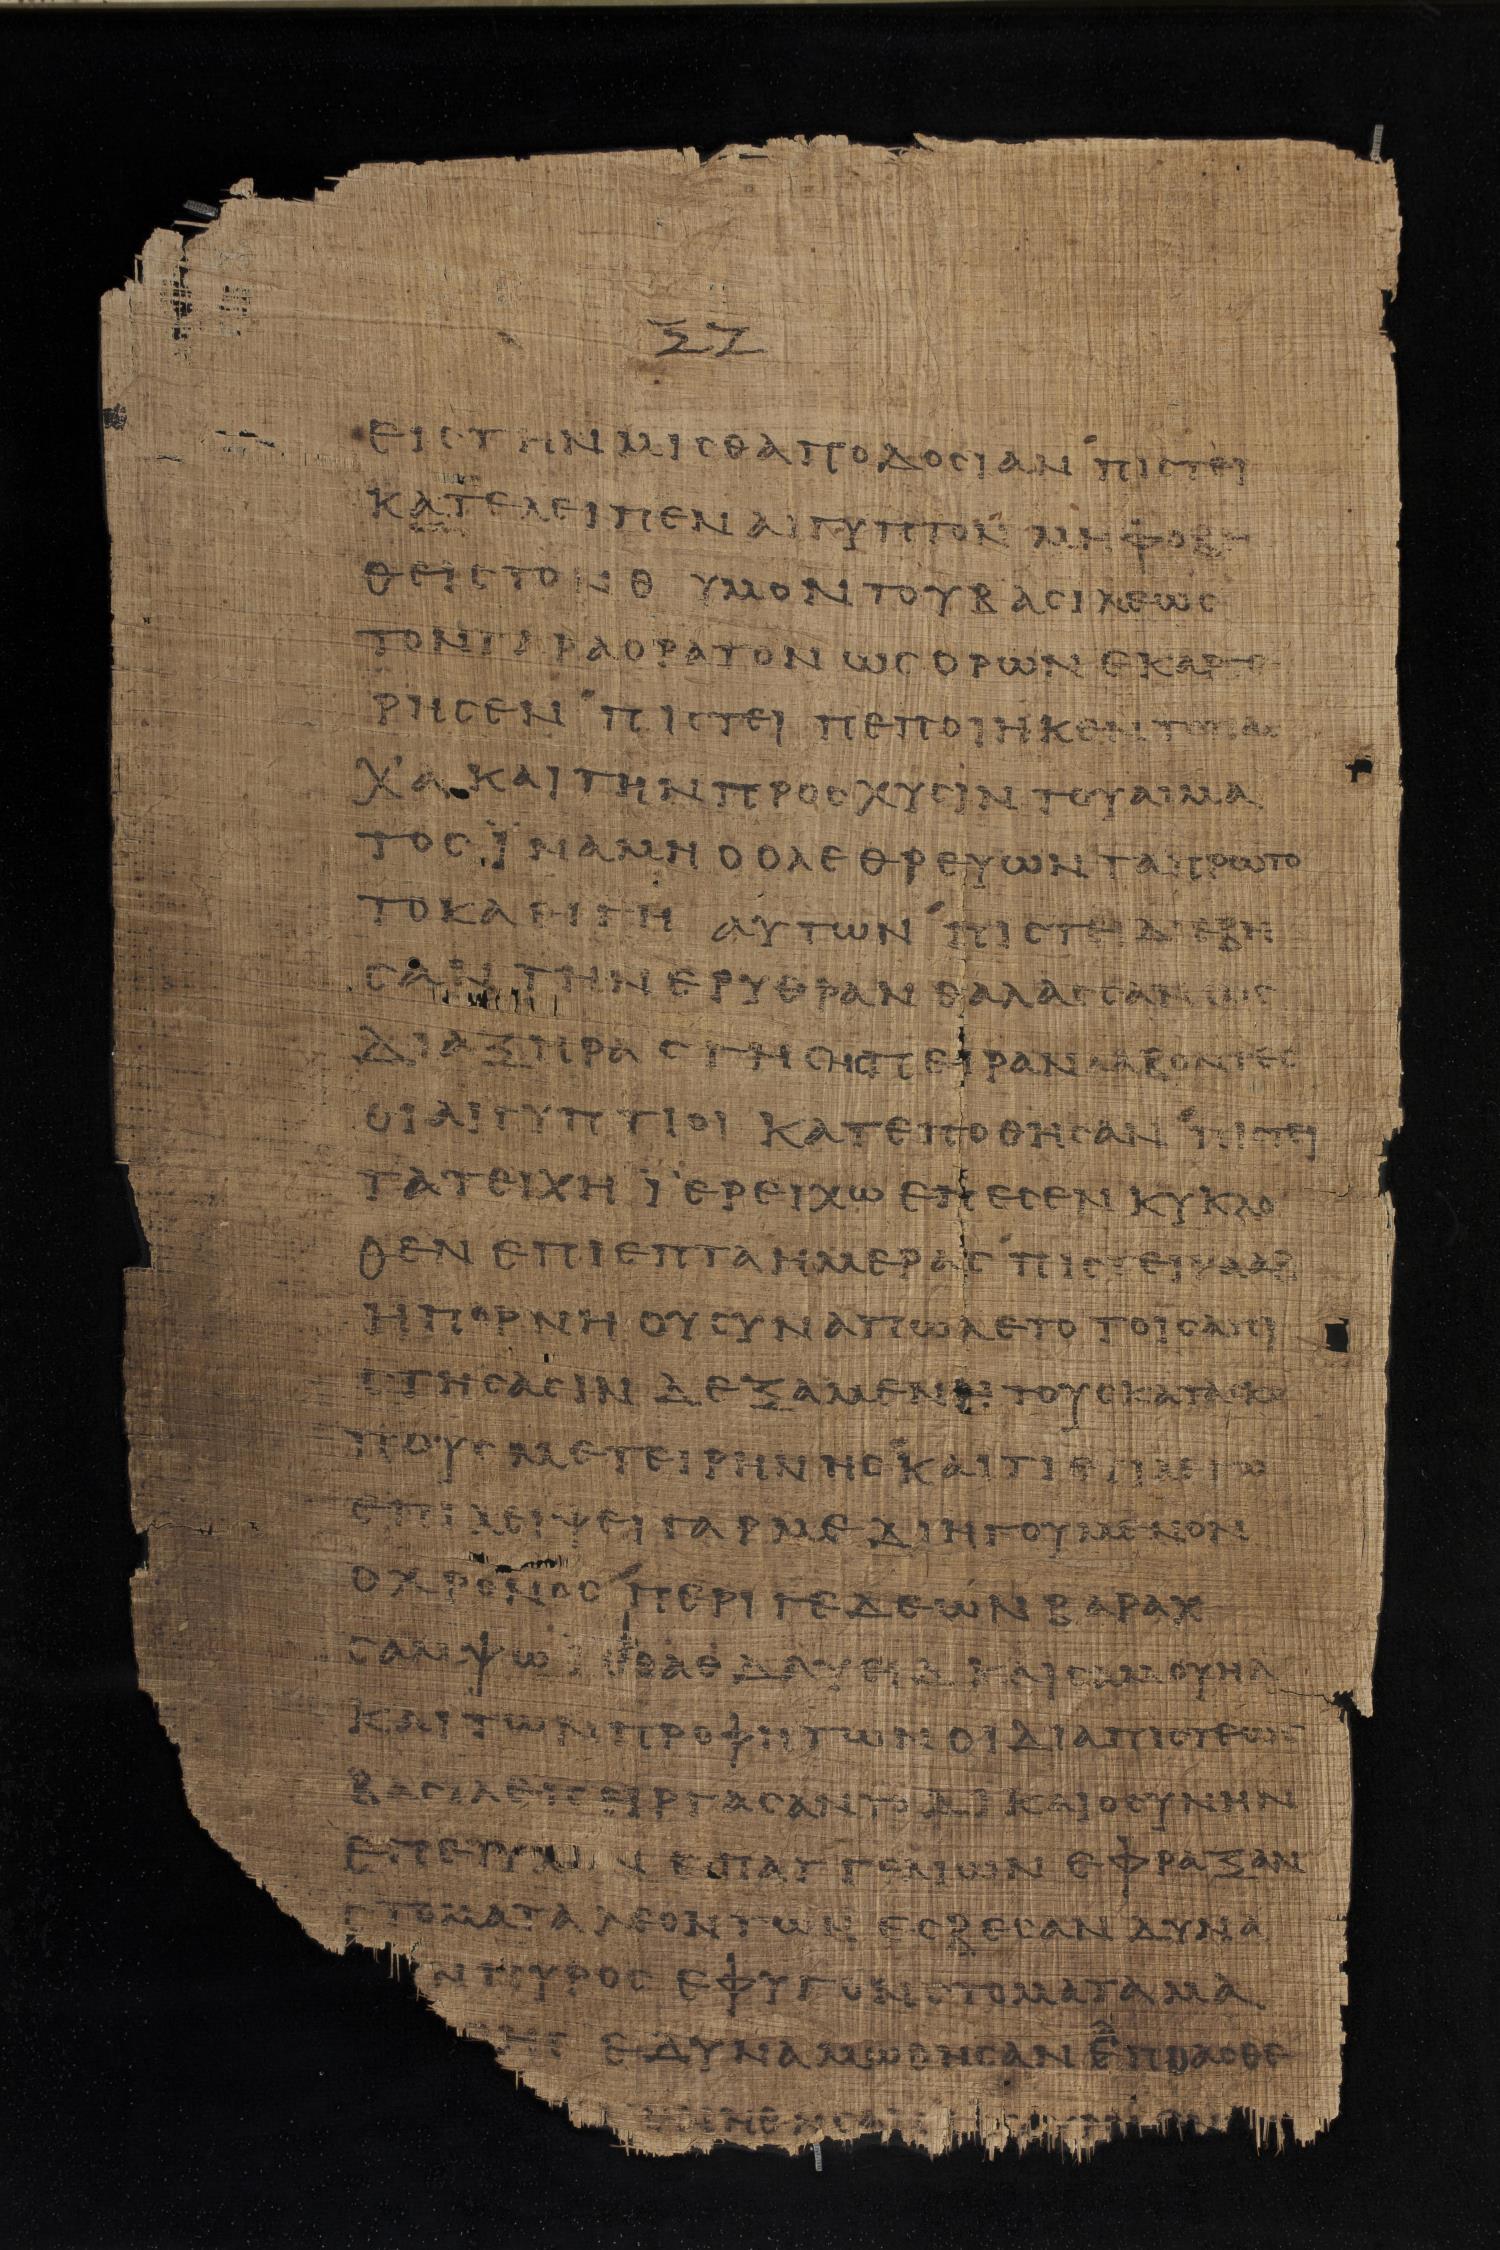 ΞΖ
ΕΙΣΤΗΝΜΙΣΘΑΠΟΔΟΣΙΑΝ ΠΙΣΤΕΙ
ΚΑΤΕΛΕΙΠΕΝΑΙΓΥΠΤΟΝ ΜΗΦΟΒΗ
ΘΕΙΣΤΟΝΘ ΥΜΟΝΤΟΥΒΑΣΙΛΕΩΣ
ΤΟΝΓΑΡΑΟΡΑΤΟΝΩΣΟΡΩΝΕΚΑΡΤΕ
ΡΗΣΕΝ ΠΙΣΤΕΙ ΠΕΠΟΙΗΚΕΝΤΟΠΑΣ
ΧΑ ΚΑΙΤΗΝΠΡΟΣΧΥΣΙΝΤΟΥΑΙΜΑ
ΤΟΣ ΪΝΑΜΗΟΟΛΕΘΡΕΥΩΝΤΑΠΡΩΤΟ
ΤΟΚΑΘΙΓΗ ΑΥΤΩΝ ΠΙΣΤΕΙΔΙΕΒΗ
ΣΑΝ ΤΗΝΕΡΥΘΡΑΝΘΑΛΑΣΣΑΝΩΣ
ΔΙΑΞΗΡΑΣΓΗΣΗΣΠΕΙΡΑΝΛΑΒΟΝΤΕΣ
ΟΙΑΙΓΥΠΤΙΟΙ ΚΑΤΕΠΟΘΗΣΑΝ ΠΙΣΤΕΙ
ΤΑΤΕΙΧΗ ΪΕΡΕΙΧΩΕΠΕΣΕΝΚΥΚΛΩ
ΘΕΝΕΠΙΕΠΤΑΗΜΕΡΑΣ ΠΙΣΤΕΙΡΑΑΒ
ΗΠΟΡΝΗ ΟΥΣΥΝΑΠΩΛΕΤΟΤΟΙΣΑΠΙ
ΣΤΗΣΑΣΙΝ ΔΕΞΑΜΕΝΗ ΤΟΥΣΚΑΤΑΣΚΟ
ΠΟΥΣΜΕΤΕΙΡΗΝΗΣ ΚΑΙΤΙΕΤΙΛΕΓΩ
ΕΠΙΛΕΙΨΕΙΓΑΡΜΕΔΙΗΓΟΥΜΕΝΟΝ
ΟΧΡΟΝΟΣ ΠΕΡΙΓΕΔΕΩΝΒΑΡΑΧ
ΣΑΜΨΩ ΔΑΥΕΙΔΚΑΙΣΑΜΟΥΗΛ
ΚΑΙΤΩΝΠΡΟΦΗΤΩΝΟΙΔΙΑΠΙΣΤΕΩΣ
ΒΑΣΙΛΕΙΣΕΙΡΓΑΣΑΝΤΟΔΙΚΑΙΟΣΥΝΗΝ
ΕΠΕΤΥΧΟΝ ΕΠΑΓΓΕΛΙΩΝ ΕΦΡΑΞΑΝ
ΣΤΟΜΑΤΑΛΕΟΝΤΩΝ ΕΣΒΕΣΑΝΔΥΝΑ
ΝΠΥΡΟΣ ΕΦΥΓΟΝΣΤΟΜΑΤΑΜΑ
ΡΗΣ ΕΔΥΝΑΜΩΘΗΣΑΝ